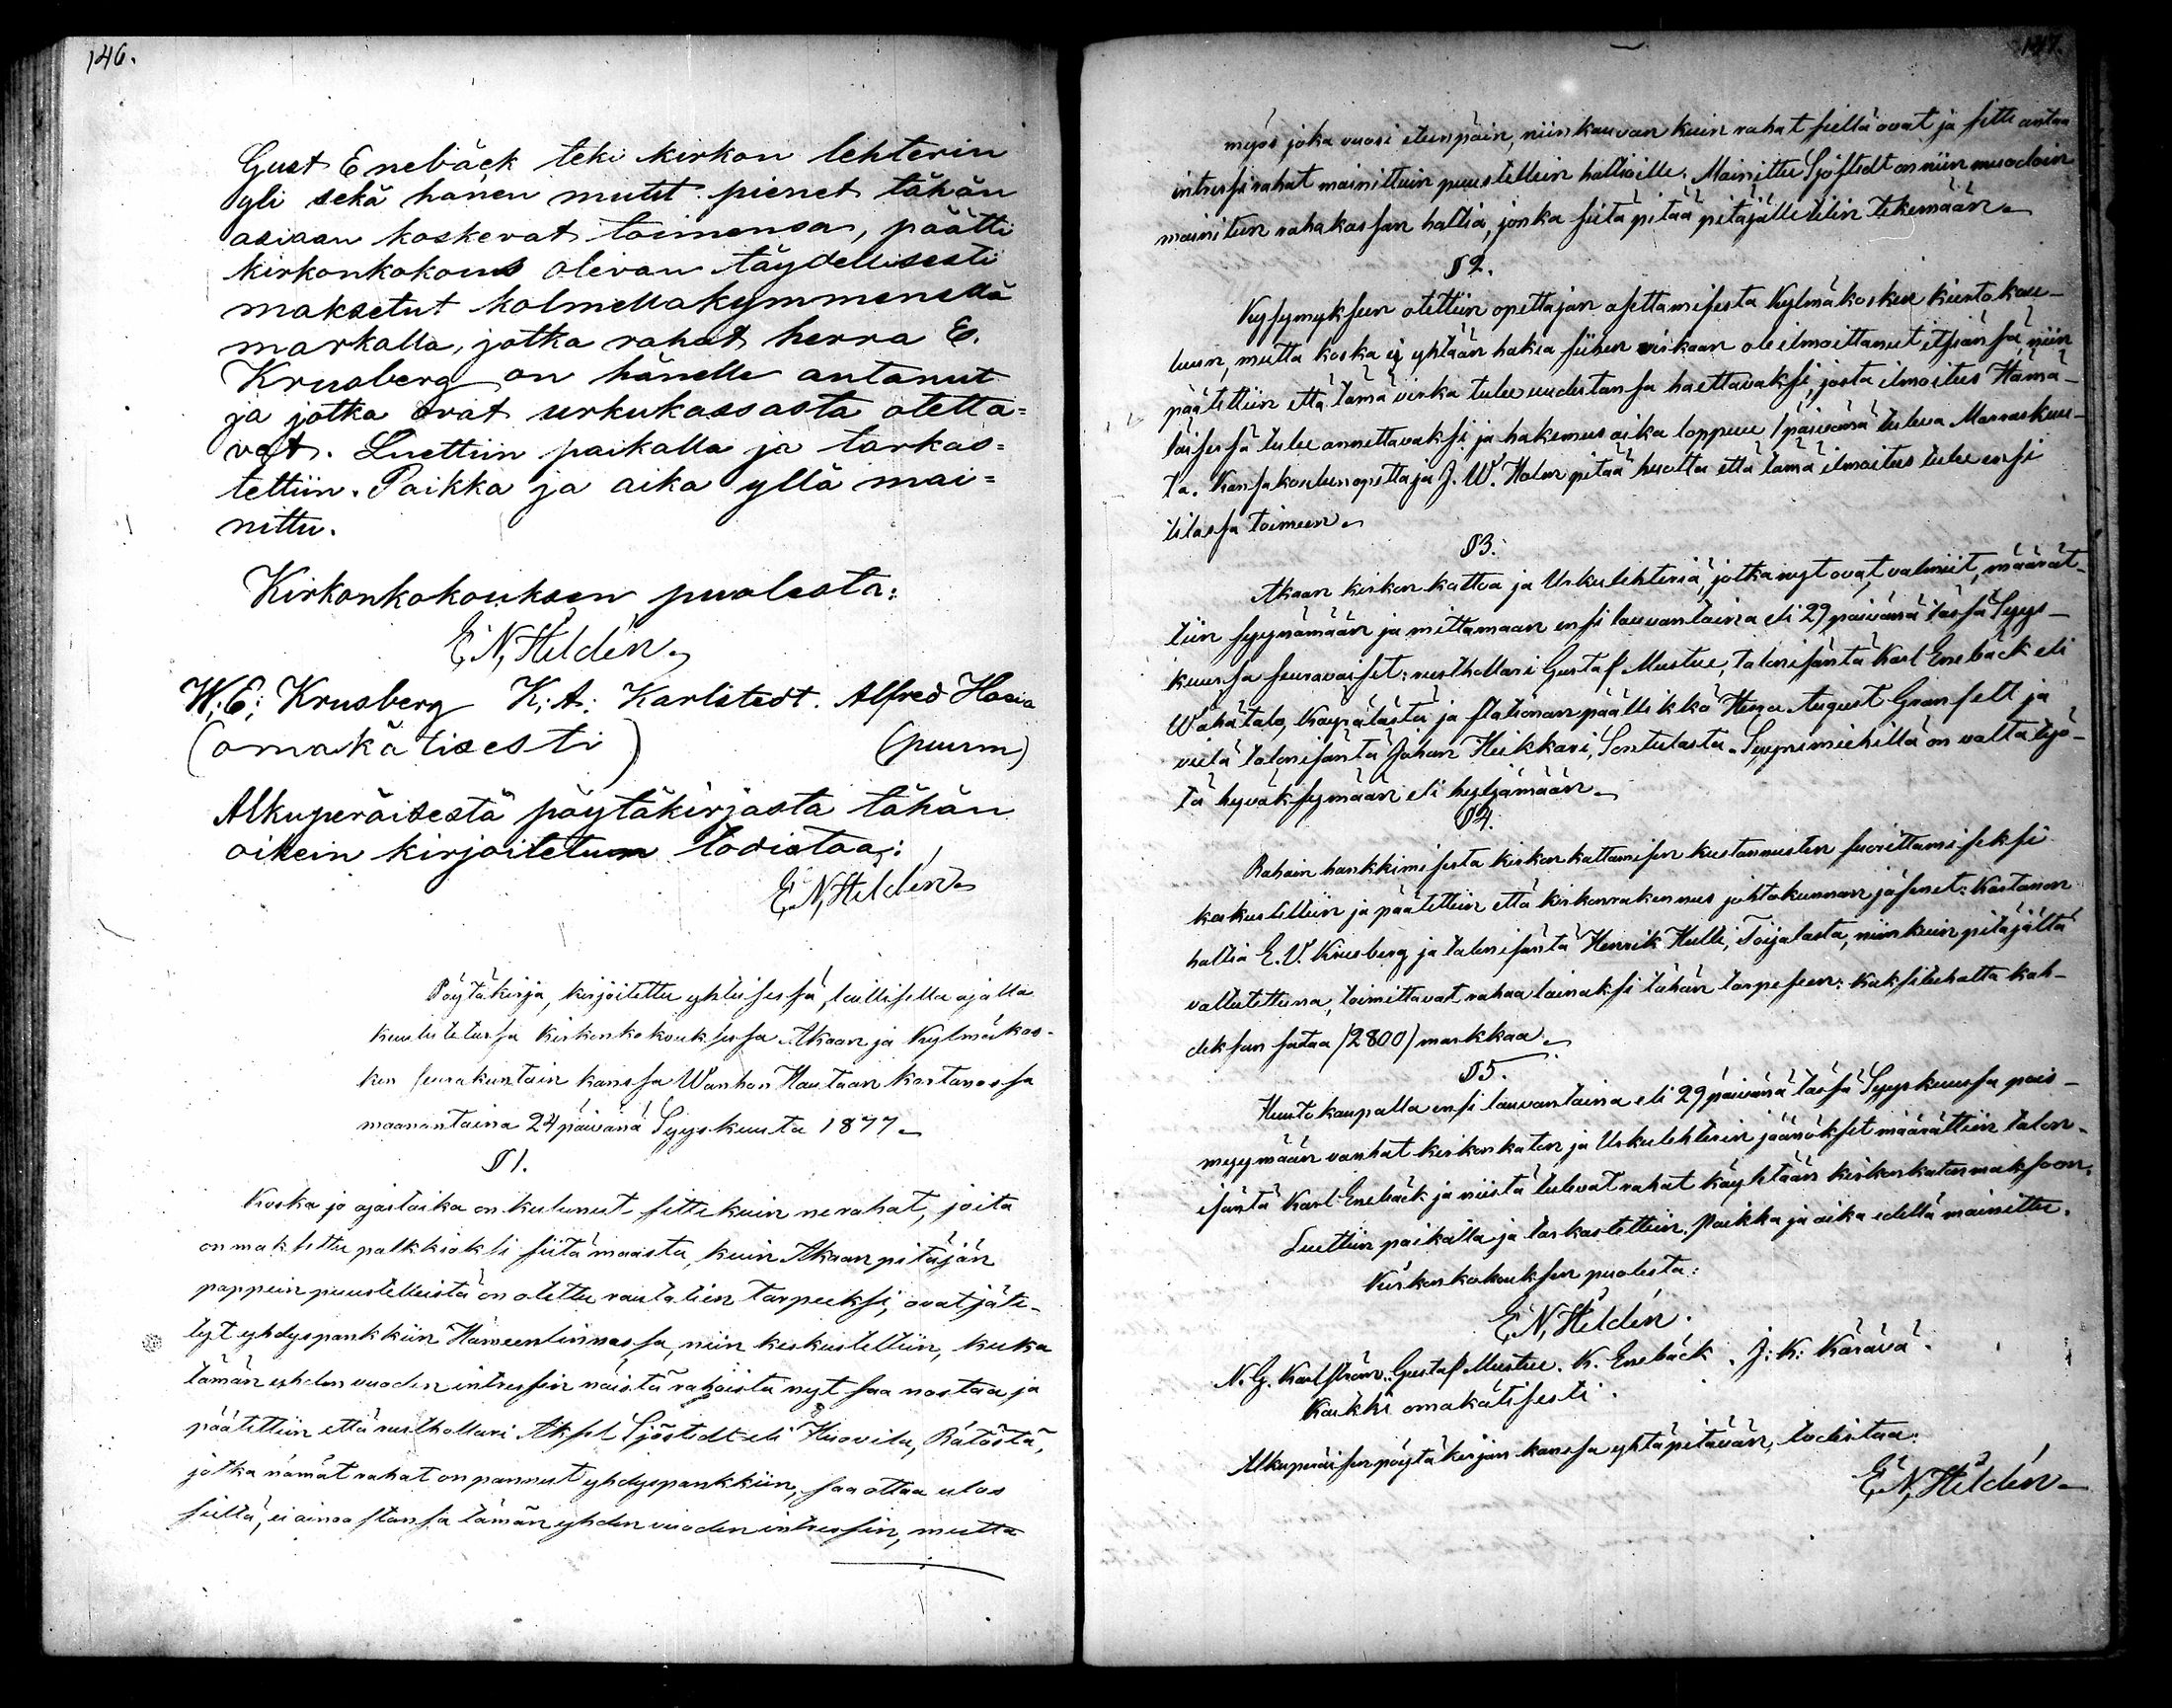 146.
Gust Enebäck teki kirkon lehterin
yli sekä hänen mutut pienet tähän
asiaan koskevat toimensa, päätti
kirkonkokous olevan täydellisesti
maksetut kolmellakymmenellä
markalla, jotka rahat herra E.
Krusberg on hänelle antanut
ja jotka ovat urkukassasta otetta=
vat. Luettiin paikalla ja tarkas=
tettiin. Paikka ja aika yllä mai=
nittu.
Kirkonkokouksen puolesta:
E. N. Heldén.
W: E: Krusberg K: A: Karlstedt. Alfred Haavia
(omakätisesti) (puum)
Alkuperäisestä pöytäkirjasta tähän
oikein kirjoitetum todistaa:
E. N. Heldén
Pöytäkirja, kirjoitettu yhteisessä, laillisella ajalla
kuulutetussa Kirkonkokouksessa Akaan ja Kylmäkos-
ken seurakuntain kanssa Wanhan Hautaan Kartanossa
maanantaina 24 päivänä Syyskuuta 1877.
§ 1.
Koska jo ajastaika on kulunut sitte kuin ne rahat, joita
on maksettu palkkioksi siitä maasta, kuin Akaan pitäjän
pappein puustelleista on otettu rautatien tarpeeksi, ovat jäte-
tyt yhdyspankkiin Hämeenlinnassa, niin keskusteltiin, kuka
tämän yhden vuoden intressin näistä rahoista nyt saa nostaa ja
päätettiin että rusthollari Aksel Sjöstedt eli Huovila, Rätöstä,
jotka nämät rahat on pannut yhdyspankkiin, saa ottaa ulos
sieltä, ei ainoastansa tämän yhden vuoden intressin, mutta
147.
myös joka vuosi eteenpäin, niinkauvan kuin rahat siellä ovat ja sitte antaa
intressirahat mainittuin puustellein haltioille. Mainittu Sjöstedt on niin muodoin
mainitun rahakassan haltia, jonka siitä pitää pitäjälle tilin tekemään.
§ 2.
Kysymykseen otettiin opettajan asettamisesta Kylmäkosken kiertokou-
luun, mutta koska ei yhtään hakia siihen virkaan ole ilmoittanut itsiänsä, niin
päätettiin että tämä virka tulee uudestansa haettavaksi, josta ilmoitus Hämä-
läisessä tulee annettavaksi ja hakemusaika loppuu 1 päivänä tuleva Marraskuu-
ta. Kansakoulunopettaja J. W. Holm pitää huolta että tämä ilmoitus tulee ensi
tilassa toimeen.
§ 3.
Akaan kirkon kattoa ja Urkulehteriä, jotka nyt ovat valmiit, määrät-
tiin syynämään ja mittamaan ensi lauvantaina eli 29 päivänä tässä Syys-
kuussa seuraavaiset: rusthollari Gustaf Mustue, talonisäntä Karl Enebäck eli
Wähätalo, Kaypälästä ja stationanpäällikkö Hugo August Granfelt ja
vielä talonisäntä Johan Heikkari, Sontulasta. Syynimiehillä on valta työ-
tä hyväksymään eli hyljämään.
§ 4.
Rahain hankkimisesta kirkon kattamisen kustannusten suorittamiseksi
keskusteltiin ja päätettiin että kirkonrakennus johtokunnan jäsenet: Kartanon
haltia E. V. Krusberg ja talonisäntä Henrik Hulli, Toijalasta, niinkuin pitäjältä
valtutettuna, toimittavat rahaa lainaksi tähän tarpeseen: Kaksituhatta kah-
deksan sataa (2800) markkaa.
§ 5.
Huutokaupalla ensi lauvantaina eli 29 päivänä tässä Syyskuussa pois-
myymään vanhat kirkonkaton ja Urkulehterin jäänökset määrättiin talon-
isäntä Karl Enebäck ja niistä tulevat rahat käyhtään kirkonkaton maksoon.
Luettiin paikalla ja tarkastettiin. Paikka ja aika edellä mainittu.
Kirkonkokouksen puolesta:
E. N. Heldén.
N. G. Karlström. Gustaf Mustue. K. Enebäck. J: K: Kärävä.
Kaikki omakätisesti.
Alkuperäisen pöytäkirjan kanssa yhtäpitävän, todistaa:
E. N. Heldén